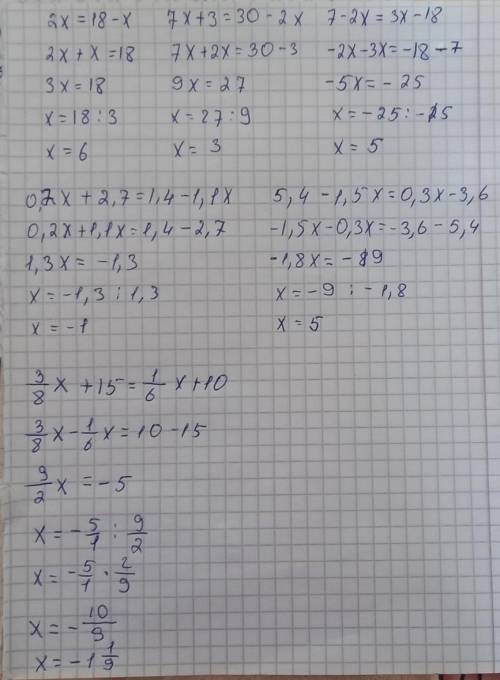 2x = 18 - x
2x + x = 18
3x = 18
x = 18 : 3
x = 6
7x + 3 = 30 - 2x
7x + 2x = 30 - 3
9x = 27
x = 27 : 9
x = 3
7 - 2x = 3x - 18
-2x - 3x = -18 - 7
-5x = -25
x = -25 : -5
x = 5
0,2x + 2,7 = 1,4 - 1,1x
0,2x + 1,1x = 1,4 - 2,7
1,3x = -1,3
x = -1,3 : 1,3
x = -1
5,4 - 1,5x = 0,3x - 3,6
-1,5x - 0,3x = -3,6 - 5,4
-1,8x = -9
x = -9 : -1,8
x = 5
3/8 x + 15 = 1/6 x + 10
3/8 x - 1/6 x = 10 - 15
9/2 x = -5
x = -5/1 : 9/2
x = -5/1 · 2/9
x = -10/9
x = -1 1/9